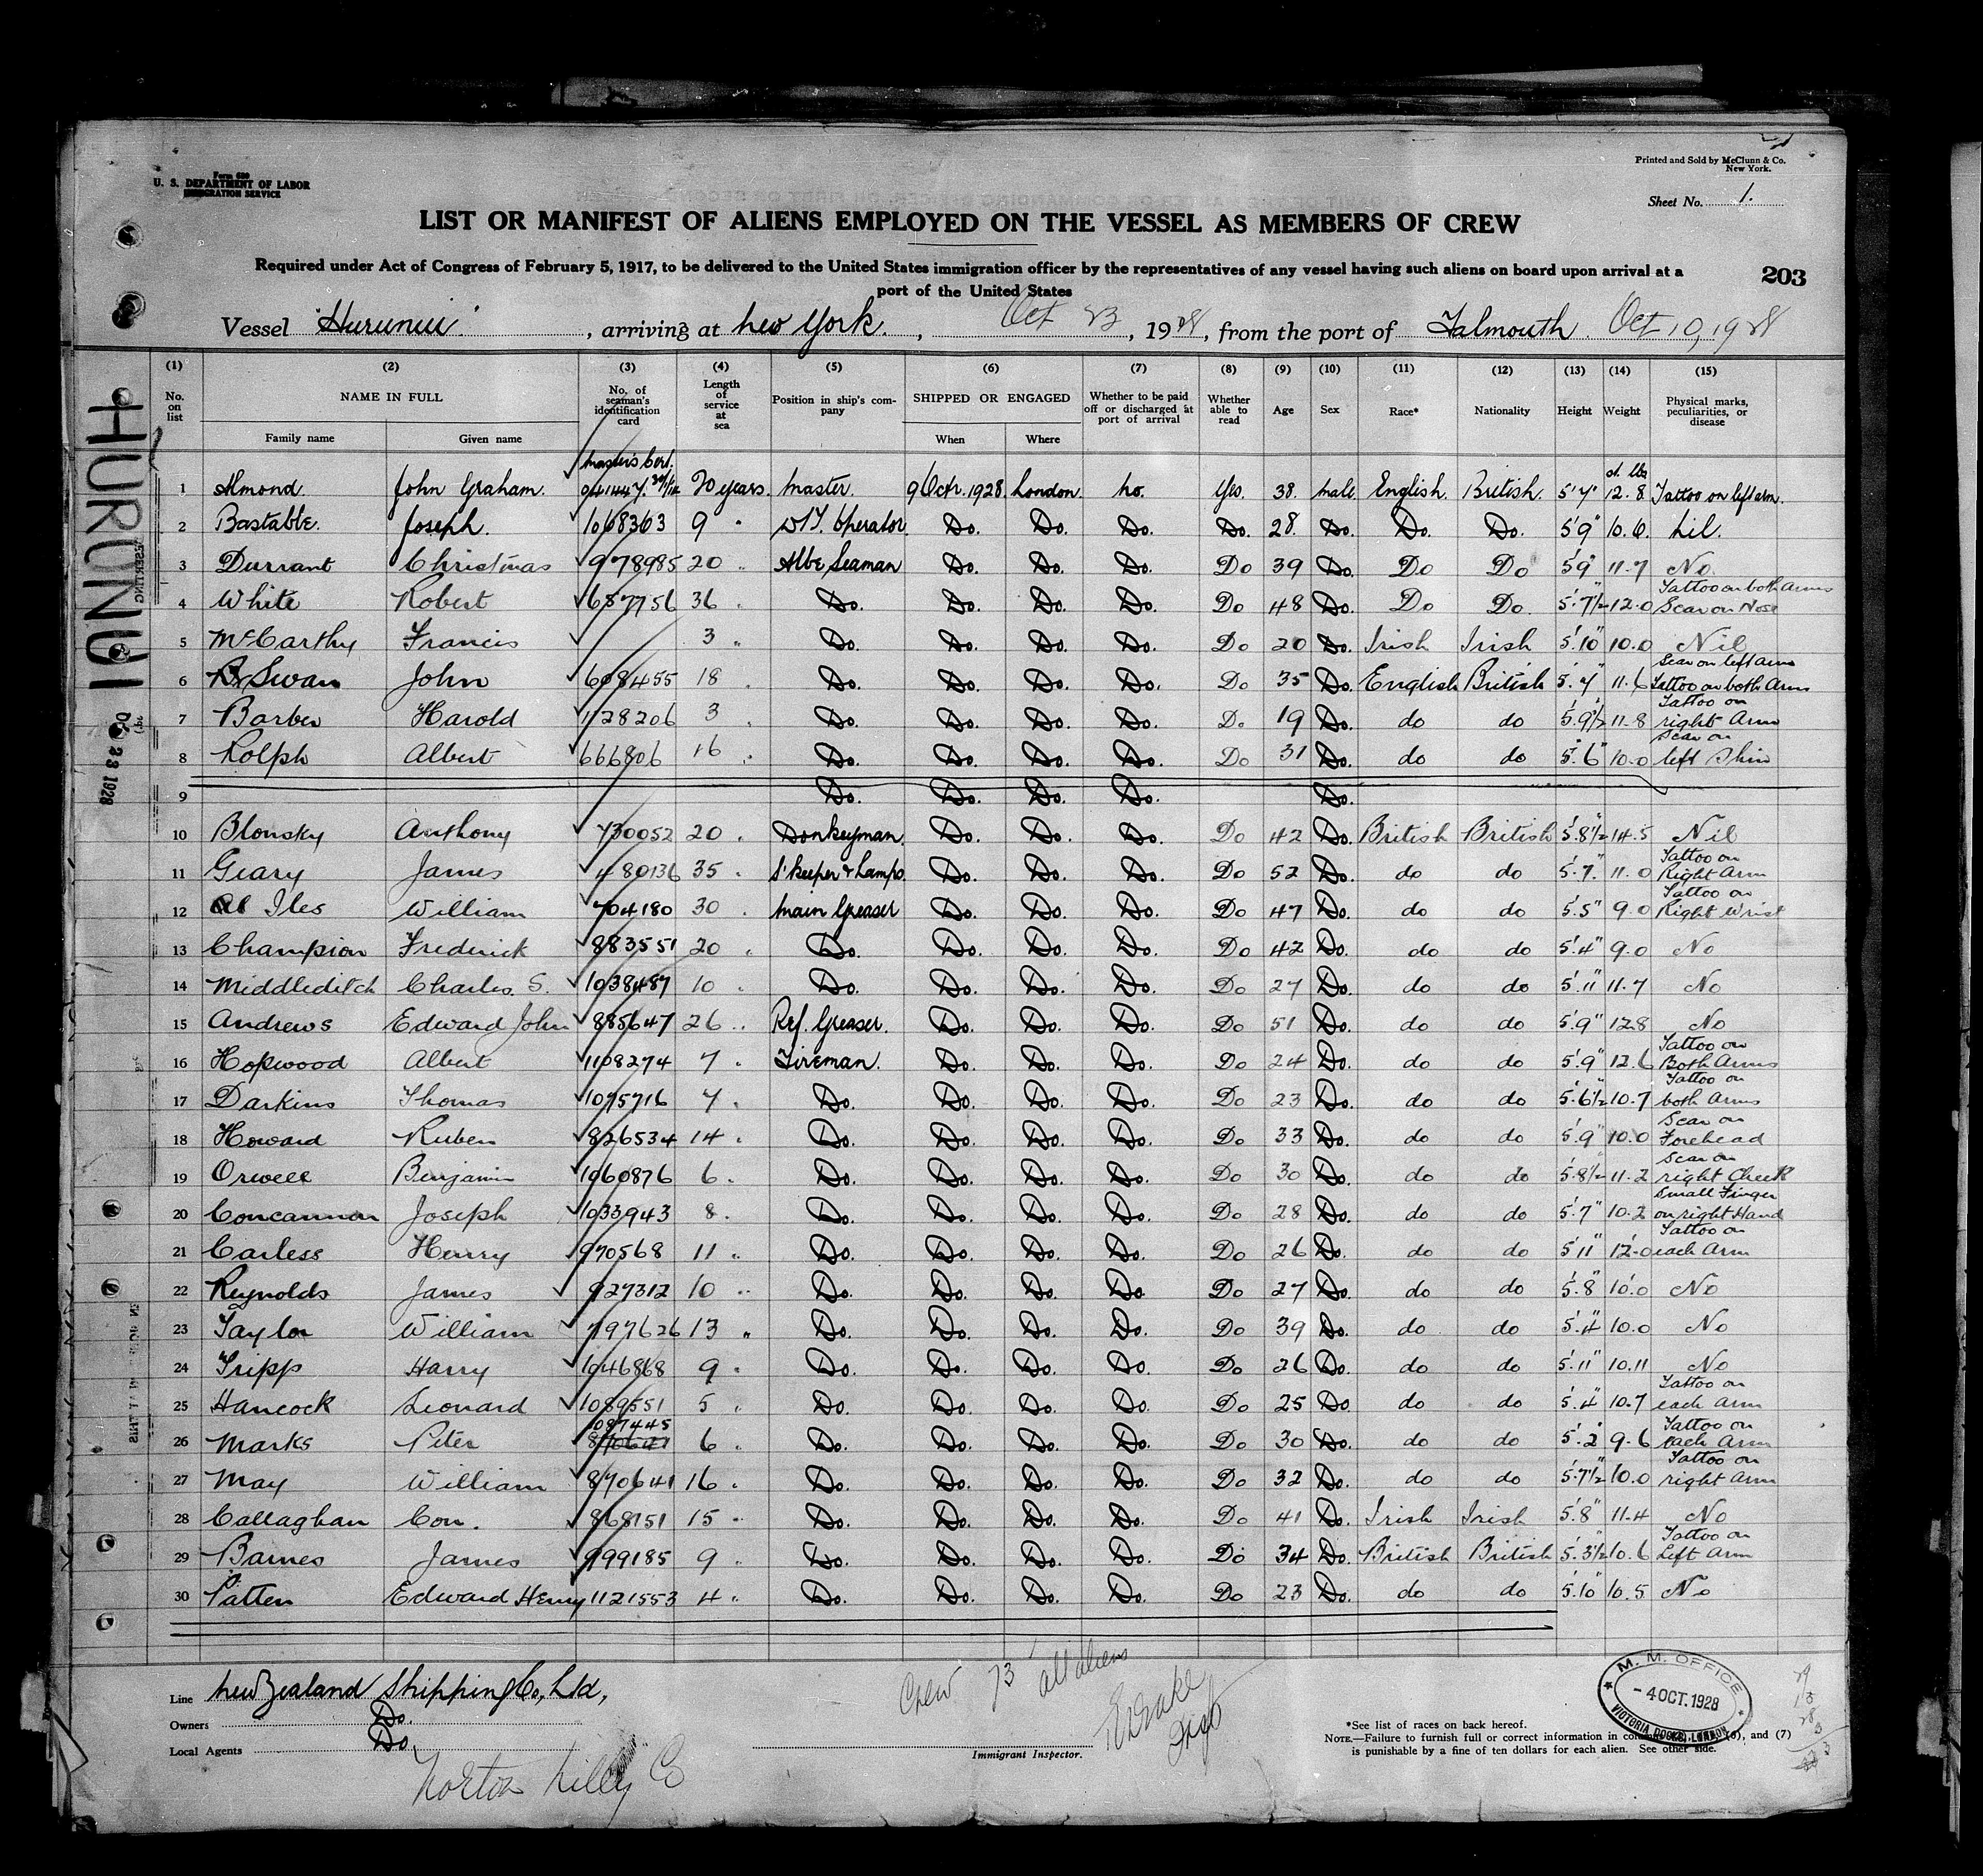 Form 680
U. S. DEPARTMENT OF LABOR
IMMIGRATION SERVICE
Printed and Sold by McClunn & Co.
New York.
Sheet No. 1.
LIST OR MANIFEST OF ALIENS EMPLOYED ON THE VESSEL AS MEMBERS OF CREW
Required under Act of Congress of February 5, 1917, to be delivered to the United States immigration officer by the representatives of any vessel having such aliens on board upon arrival at a
port of the United States
203
Vessel "Hurunui", arriving at New York., Oct 23, 1928, from the port of Falmouth. Oct 10, 1928
HURUNUI
(1) (2) (3) (4) (5) (6) (7) (8) (9) (10) (11) (12) (13) (14) (15)
No. on list NAME IN FULL No. of seaman's identification card Length of service at sea Position in ship's company SHIPPED OR ENGAGED Whether to be paid off or discharged at port of arrival Whether able to read Age Sex Race* Nationality Height Weight Physical marks, peculiarities, or disease
Family name Given name When Where
Master's Cert. st. lbs
1 Almond. John Graham. 20 years. Master. 9 Octr. 1928. London. No. Yes. 38. Male. English. British. 5'7" 12.8. Tattoo on left arm.
2 Bastable. Joseph. 1068363 9 " W/T. Operator. Do. Do. Do. Do. 28. Do. Do. Do. 5'9" 10.6. Nil.
3 Durrant Christmas 978985 20 " Able Seaman Do. Do. Do. Do 39 Do. Do Do 5'9" 11.7 No
4 White Robert 687756 36 " Do. Do. Do. Do. Do 48 Do. Do Do. 5'7½ 12.0 Tattoo on both Arms Scar on Nose
5 McCarthy Francis 3 " Do. Do. Do. Do. Do 20 Do. Irish Irish 5'10" 10.0 Nil
6 Swan John 608455 18 " Do. Do. Do. Do. Do 35 Do. English British 5'7" 11.6 Scar on left Arm Tattoo on both Arms
7 Barber Harold 1128206 3 " Do. Do. Do. Do. Do 19 Do. do do 5'9½ 11.8 Tattoo on right Arm
8 Rolph Albert 666806 16 " Do. Do. Do. Do. Do 31 Do. do do 5'6" 10.0 Scar on left Shin
9 Do. Do. Do. Do. Do.
10 Blonsky Anthony 730052 20 " Donkeyman. Do. Do. Do. Do 42 Do. British British 5'8½ 14.5 Nil
11 Geary James 480136 35 " S'keeper & Lamps. Do. Do. Do. Do 52 Do. do do 5'7" 11.0 Tattoo on Right Arm
12 Iles William 704180 30 " Main Greaser Do. Do. Do. Do 47 Do. do do 5'5" 9.0 Tattoo on Right Wrist
13 Champion Frederick 883551 20 " Do. Do. Do. Do. Do 42 Do. do do 5'4" 9.0 No
14 Middleditch Charles. S. 1038487 10 " Do. Do. Do. Do. Do 27 Do. do do 5'11" 11.7 No
15 Andrews Edward John 885647 26 " Ref. Greaser. Do. Do. Do. Do 51 Do. do do 5'9" 12.8 No
16 Hopwood Albert 1108274 7 " Fireman. Do. Do. Do. Do 24 Do. do do 5'9" 12.6 Tattoo on Both Arms
17 Darkins Thomas 1075716 7 " Do. Do. Do. Do. Do 23 Do. do do 5'6½ 10.7 Tattoo on both Arms
18 Howard Ruben 826534 14 " Do. Do. Do. Do. Do 33 Do. do do 5'9" 10.0 Scar on Forehead
19 Orwell Benjamin 1060876 6 " Do. Do. Do. Do. Do 30 Do. do do 5'8½ 11.2 Scar on right Cheek
20 Concannon Joseph 1033943 8 " Do. Do. Do. Do. Do 28 Do. do do 5'7" 10.2 Small Finger on right Hand
21 Carless Henry 970568 11 " Do. Do. Do. Do. Do 26 Do. do do 5'11" 12.0 Tattoo on each Arm
22 Reynolds James 927312 10 " Do. Do. Do. Do. Do 27 Do. do do 5'8" 10.0 No
23 Taylor William 797626 13 " Do. Do. Do. Do. Do 39 Do. do do 5'4" 10.0 No
24 Tripp Harry 1046868 9 " Do. Do. Do. Do. Do 26 Do. do do 5'11" 10.11 No
25 Hancock Leonard 1089551 5 " Do. Do. Do. Do. Do 25 Do do do 5'4" 10.7 Tattoo on each Arm
26 Marks Peter 1097445 6 " Do. Do. Do. Do. Do 30 Do. do do 5'2" 9.6 Tattoo on each Arm
27 May William 870641 16 " Do. Do. Do. Do. Do 32 Do. do do 5'7½ 10.0 Tattoo on right Arm
28 Callaghan Con. 868151 15 " Do. Do. Do. Do. Do 41 Do. Irish Irish 5'8" 11.4 No
29 Barnes James 999185 9 " Do. Do. Do. Do. Do 34 Do. British British 5'3½ 10.6 Tattoo on Left Arm
30 Patten Edward Henry 1121553 4 " Do. Do. Do. Do. Do 23 Do. do do 5'10" 10.5 No
Crew 73 all aliens
Line New Zealand Shipping Co, Ltd,
Owners Do.
Local Agents Do.
Norton Lilly Co
Immigrant Inspector.
M. M. OFFICE
- 4 OCT. 1928
VICTORIA DOCKS, LONDON
*See list of races on back hereof.
NOTE.—Failure to furnish full or correct information in (6), and (7)
is punishable by a fine of ten dollars for each alien. See other side.